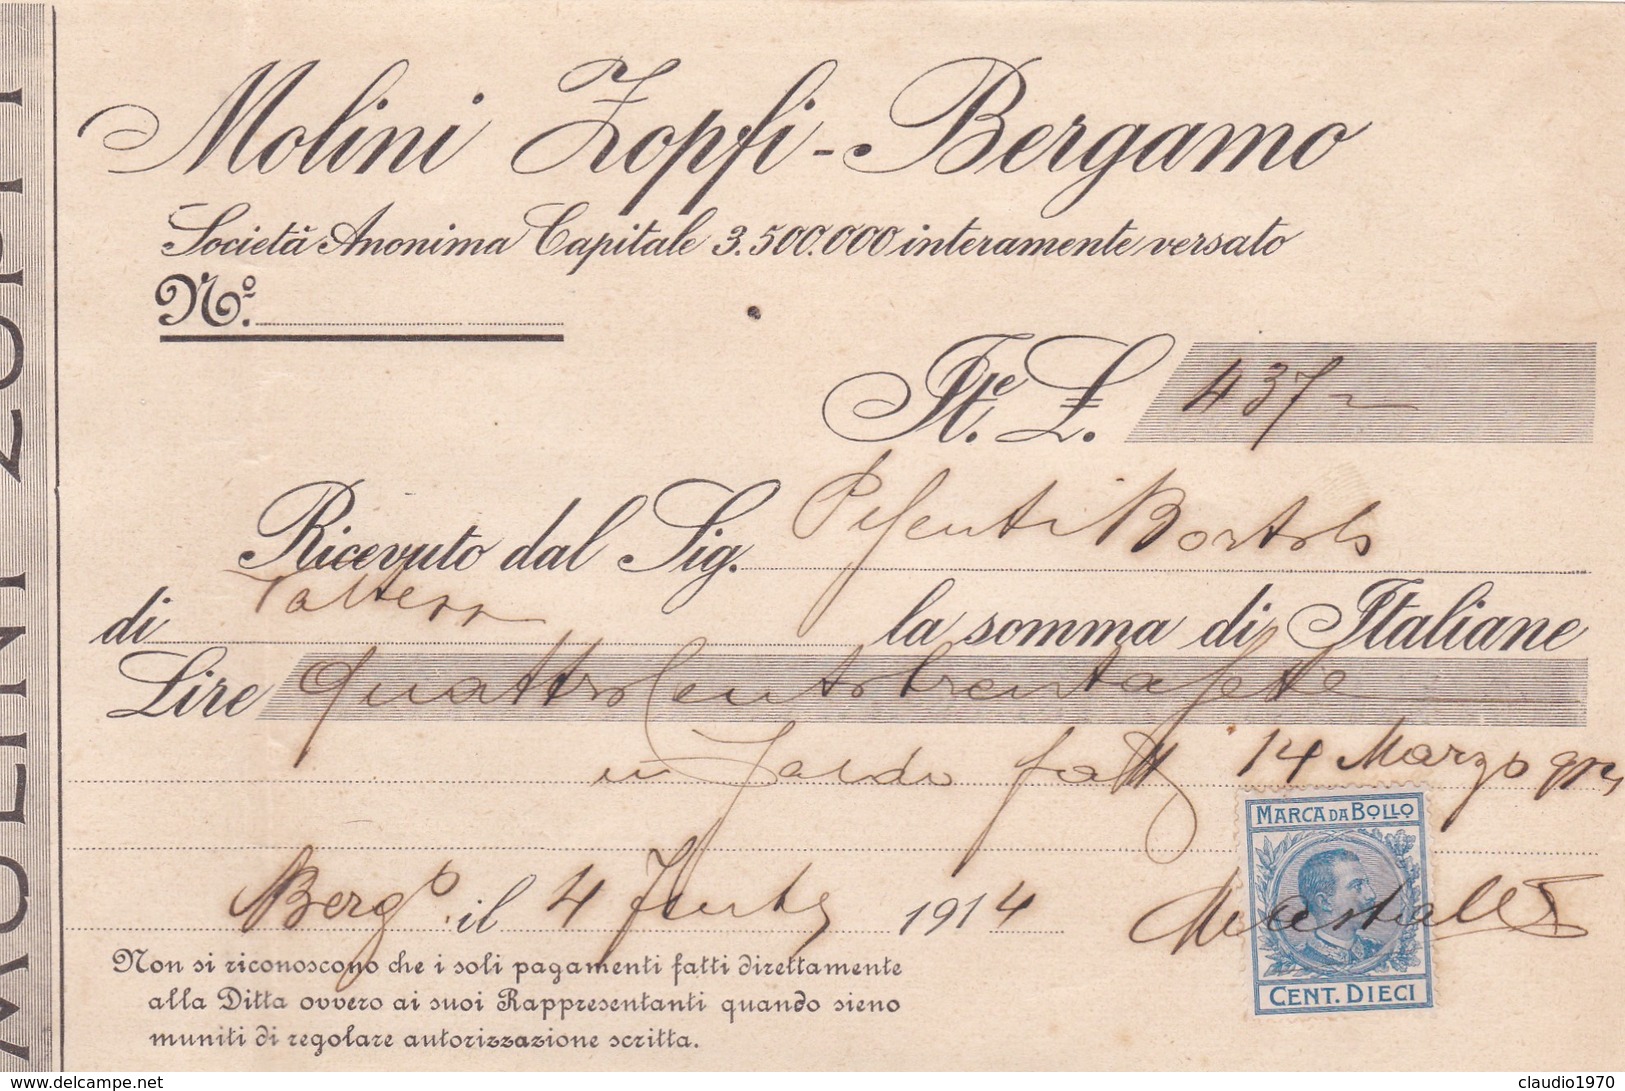 MOLINI ZOPFI
Molini Zopfi - Bergamo
Società Anonima Capitale 3.500.000 interamente versato
N.º
It.e L. 437
Ricevuto dal Sig. Pesenti Bortolo
di la somma di Italiane
Lire Quattrocentotrentasette
in Saldo fatt 14 Marzo
MARCA DA BOLLO
Bergo il 4 1914
CENT. DIECI
Non si riconoscono che i soli pagamenti fatti direttamente
alla Ditta ovvero ai suoi Rappresentanti quando sieno
muniti di regolare autorizzazione scritta.
www.delcampe.net
claudio1970